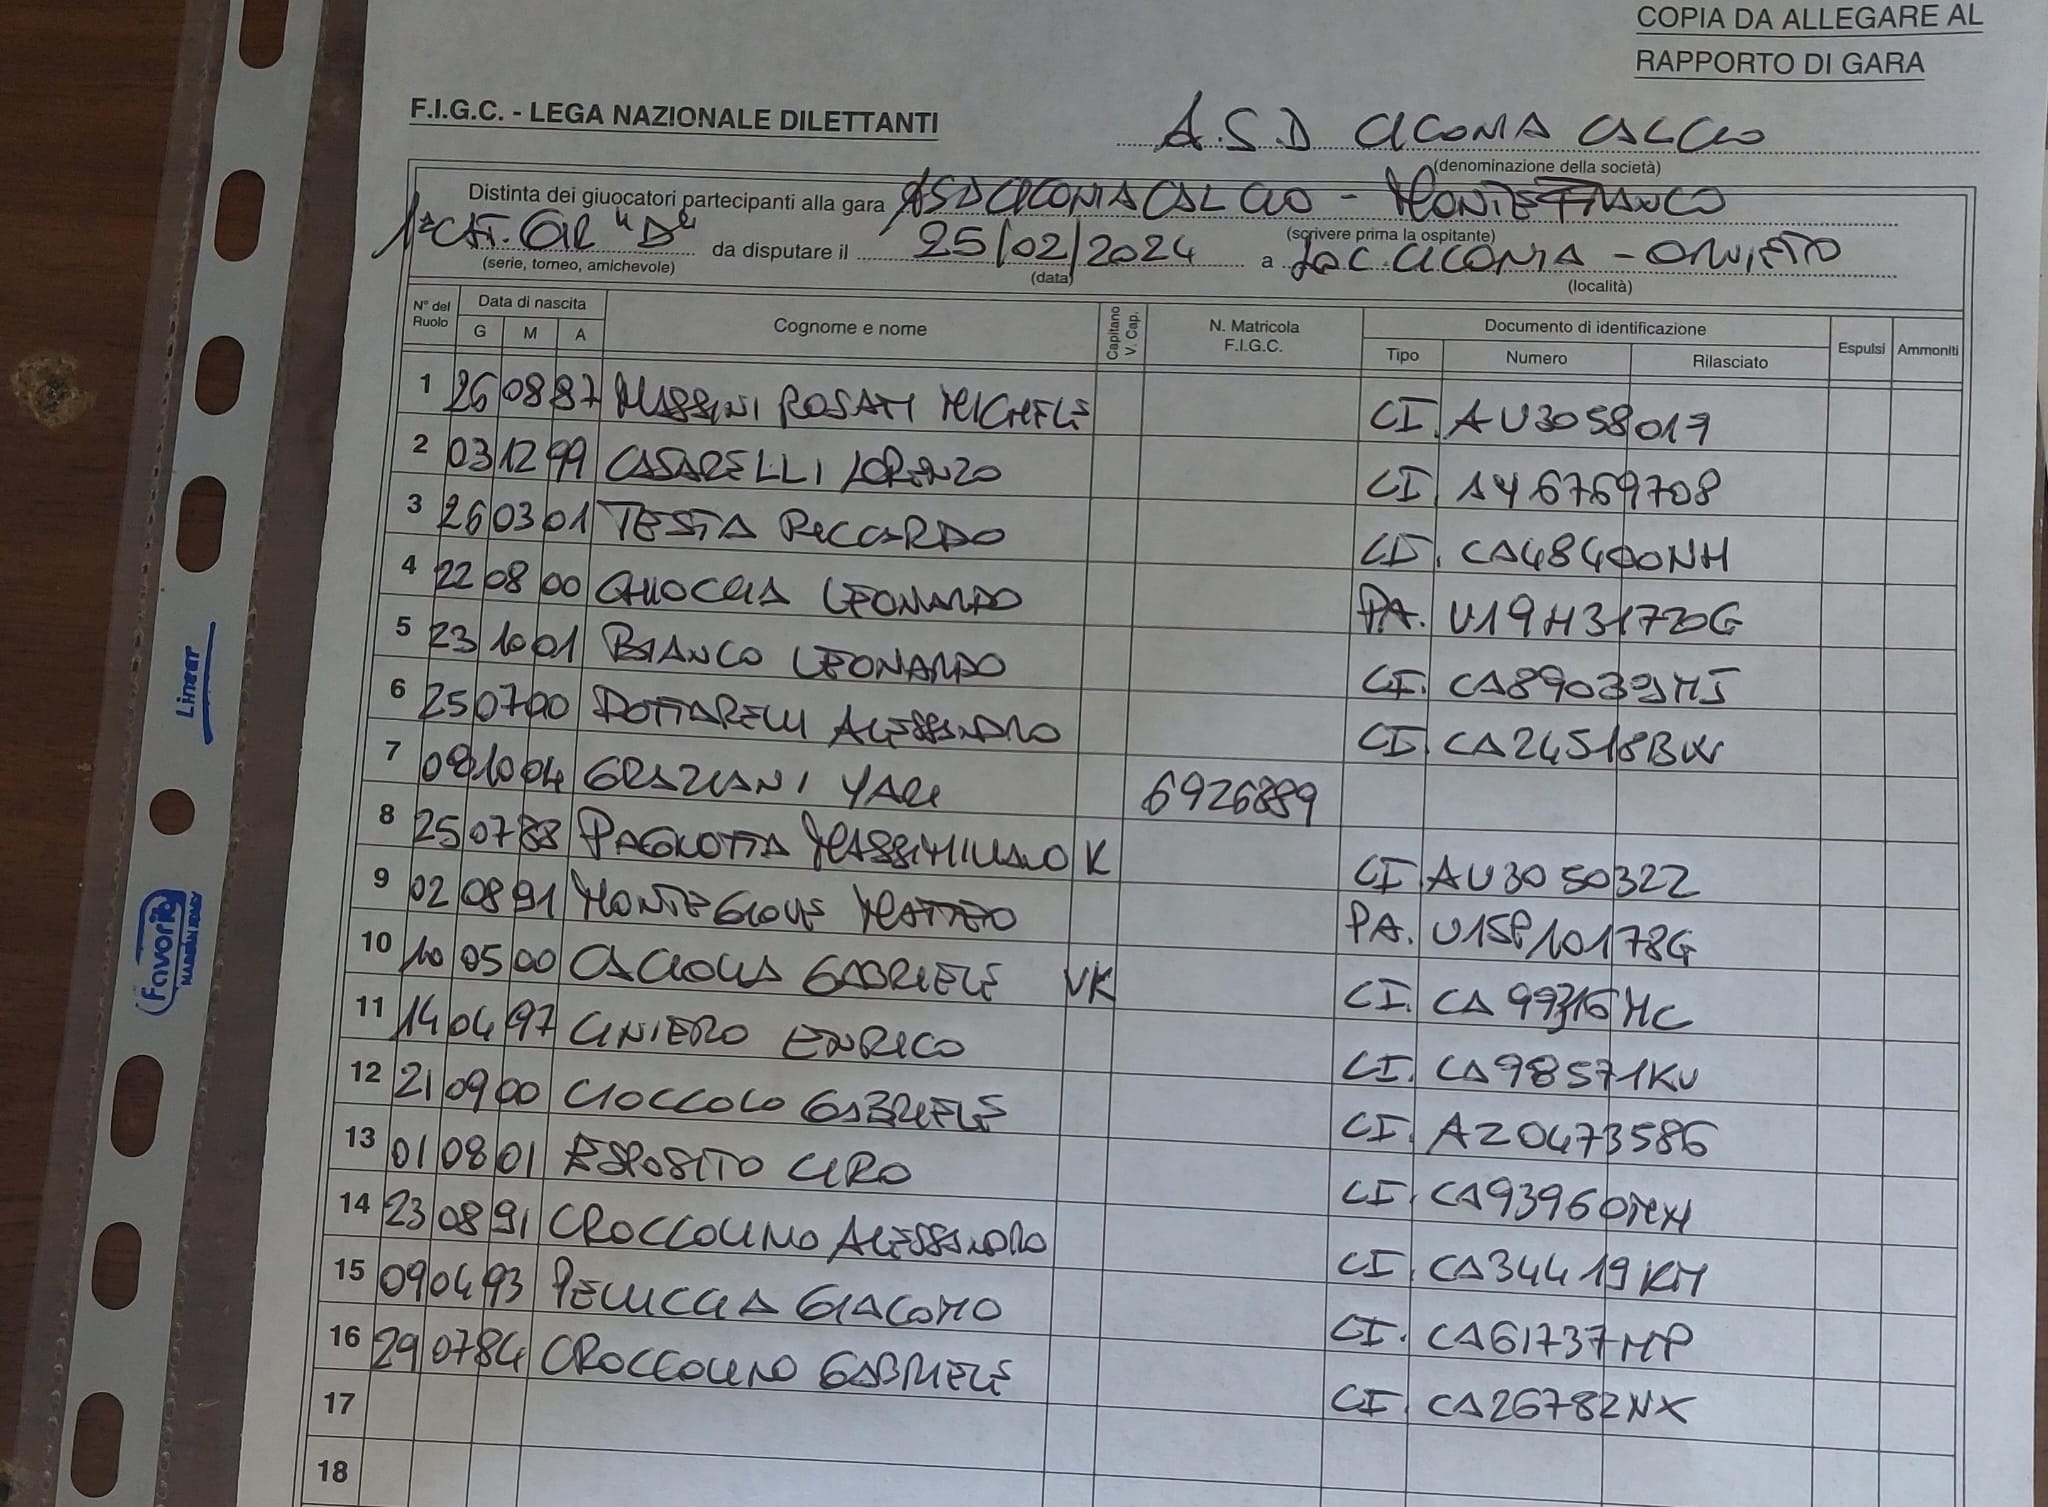 COPIA DA ALLEGARE AL
RAPPORTO DI GARA
F.I.G.C. - LEGA NAZIONALE DILETTANTI
A.S.D CICONIA CALCIO
(denominazione della società)
Distinta dei giuocatori partecipanti alla gara ASD CICONIA CALCIO - MONTEFRANCO
(scrivere prima la ospitante)
1ª CAT. GIR "D" da disputare il 25/02/2024 a LOC. CICONIA - ORVIETO
(serie, torneo, amichevole) (data) (località)
N° del Ruolo Data di nascita G M A Cognome e nome Capitano V. Cap. N. Matricola F.I.G.C. Documento di identificazione Tipo Numero Rilasciato Espulsi Ammoniti
1 26 08 87 MASSINI ROSATI MICHELE CI. AU3058019
2 03 12 99 CASARELLI LORENZO CI AY6769708
3 26 03 01 TESTA RICCARDO CI. CA48400NH
4 22 08 00 CHIOCCIA LEONARDO PA. U19H31720G
5 23 10 01 BIANCO LEONARDO CI. CA89039MJ
6 25 07 00 BOTTARELLI ALESSANDRO CI CA24518BW
7 08 10 04 GRAZIANI YARI 6926889
8 25 07 88 PAGNOTTA MASSIMILIANO K CI AU3050322
9 02 08 91 MONTEGIOVE MATTEO PA. U15P10178G
10 10 05 00 CACIOLLA GABRIELE VK CI. CA99316MC
11 14 04 97 CINIERO ENRICO CI. CA98571KU
12 21 09 00 CIOCCOLO GABRIELE CI. AZ0473586
13 01 08 01 ESPOSITO CIRO CI. CA93960MH
14 23 08 91 CROCCOLINO ALESSANDRO CI. CA34419KM
15 09 04 93 PELUCCIA GIACOMO CI. CA61737MP
16 29 07 84 CROCCOLINO GABRIELE CI. CA26782NX
17
18
Linear
Favorit